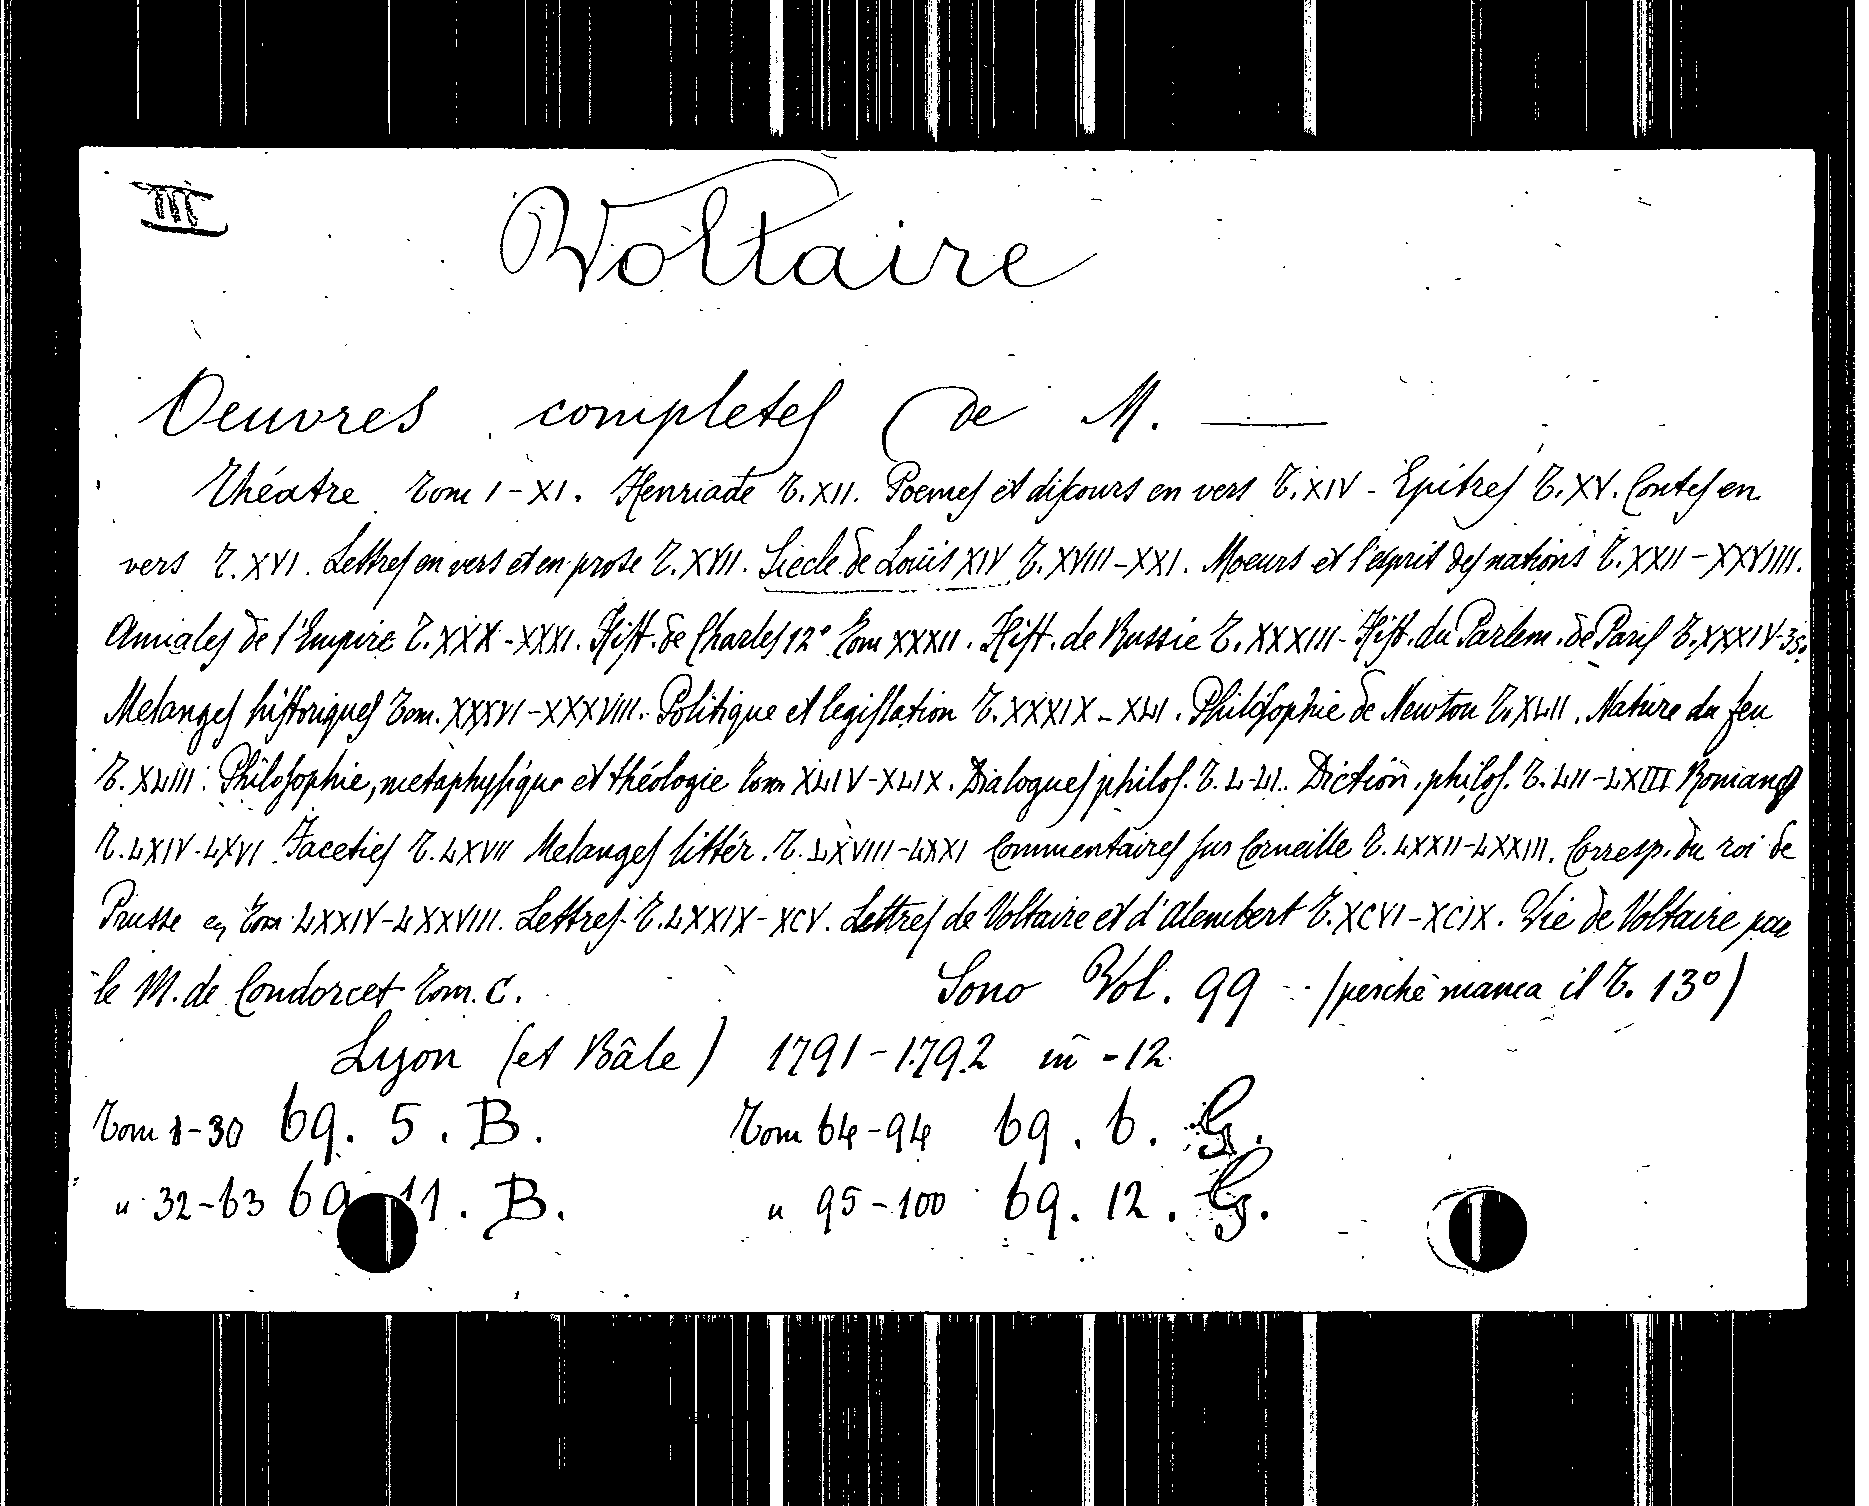 III
Voltaire
Oeuvres completes de M. —
Théatre Tom I-XI. Henriade T. XII. Poemes et discours en vers T. XIV - Epitres T. XV. Contes en
vers T. XVI. Lettres en vers et en prose T. XVII. Siecle de Louis XIV T. XVIII-XXI. Moeurs et l'esprit des nations T. XXII-XXVIIII.
Annales de l'Empire T. XXX-XXXI. Hist. de Charles 12° Tom XXXII. Hist. de Russie T. XXXIII - Hist. du Parlem. de Paris T. XXXIV-35.
Melanges historiques Tom. XXXVI-XXXVIII. Politique et legislation T. XXXIX-XLI. Philosophie de Newton T. XLII. Nature du feu
T. XLIII. Philosophie, metaphysique et théologie Tom XLIV-XLIX. Dialogues philos. T. L-LI. Diction. philos. T. LII-LXIII Romans
T. LXIV-LXVI Faceties T. LXVII Melanges littér. T. LXVIII-LXXI Commentaires sur Corneille T. LXXII-LXXIII. Corresp. du roi de
Prusse Tom LXXIV-LXXVIII. Lettres T. LXXIX-XCV. Lettres de Voltaire et d'Alembert T. XCVI-XCIX. Vie de Voltaire par
le M. de Condorcet Tom. C. Sono Vol. 99 - (perchè manca il T. 13°)
Lyon (et Bâle) 1791-1792 in-12
Tom 1-30 69. 5. B. Tom 64-94 69. 6. G.
" 32-63 69. 11. B. " 95-100 69. 12. G.